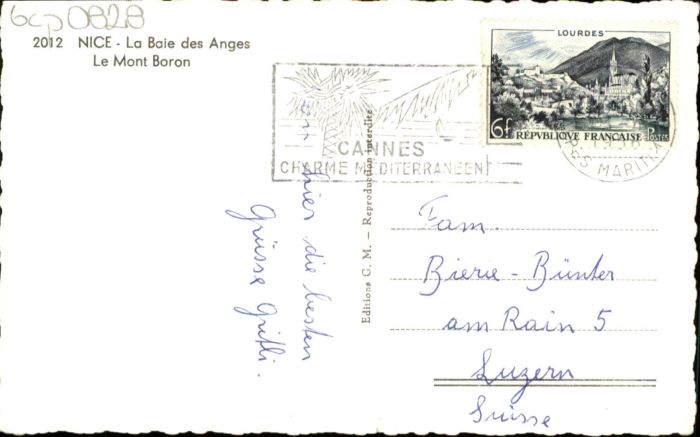 6cp0828
2012 NICE - La Baie des Anges
Le Mont Boron
LOURDES
6f RÉPUBLIQUE FRANÇAISE Postes
CANNES
CHARME MEDITERRANEEN
ES MARITIM
Editions G. M. — Reproduction interdite
hier die besten
Grüsse Gritli.
Fam.
Bierie - Bünter
am Rain 5
Luzern
Suisse